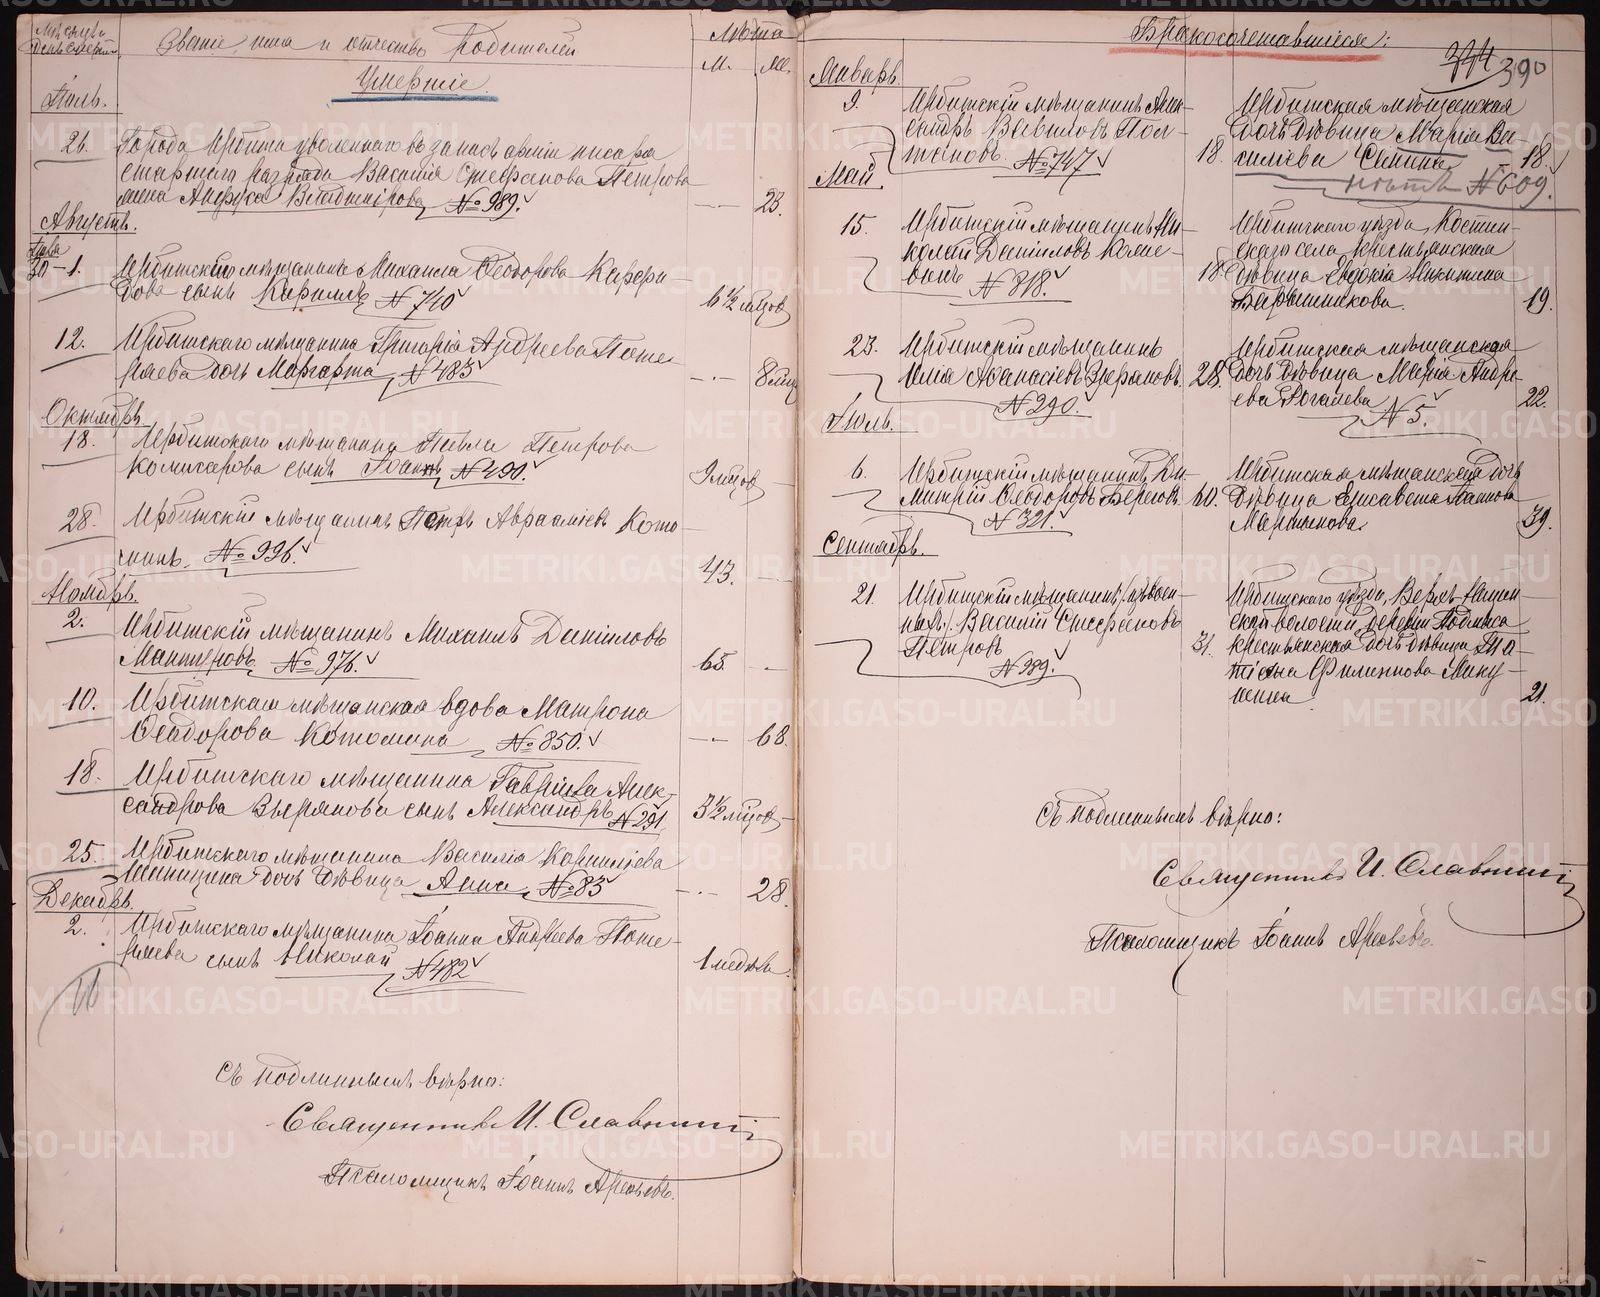 Мѣсяцъ и
день смерти
Званіе, имя и отчество Родителей
Лѣта
М. Ж.
Умершіе.
Іюль.
21. Города Ирбита уволеннаго въ запасъ арміи писаря
старшаго разряда Василія Стефанова Петрова
жена Владимірова № 989. 23.
Августъ.
30-1. Ирбитскаго мѣщанина Михаила Ѳеодорова
сынъ № 740 6 1/2 мѣсцов
12. Ирбитскаго мѣщанина Григорія Андреева Поте-
ряева дочь Маргарита № 483 8 мѣс
Октябрь.
18. Ирбитскаго мѣщанина Павла Петрова
Комисарова сынъ Іоаннъ № 490. 9 мѣсцов
28. Ирбитскій мѣщанинъ Петръ Авраамiевъ Кото-
№ 996. 43.
Ноябрь.
2. Ирбитскій мѣщанинъ Михаилъ Даніиловъ
Мантуровъ № 976. 65.
10. Ирбитская мѣщанская вдова Матрона
Ѳеодорова № 850. 68.
18. Ирбитскаго мѣщанина Гавріила Алек-
сандрова Зырянова сынъ Александръ № 291. 3 1/2 мѣсцов
25. Ирбитскаго мѣщанина Василія Корнилiева
дочь дѣвица Анна № 83 28.
Декабрь.
2. Ирбитскаго мѣщанина Іоанна Андреева Поте-
ряева сынъ Николай № 482 1 недѣля
Съ подлиннымъ вѣрно:
Священникъ И. Славнинъ
Псаломщикъ Іоаннъ
Бракосочетавшіеся:
374 390
Январь.
9. Ирбитскій мѣщанинъ Алек-
сандръ Вавиловъ Пол-
тановъ. № 747 18.
Ирбитская мѣщанская
дочь дѣвица Марія Ва-
силіева 18.
№ 609.
Май.
15. Ирбитскій мѣщанинъ Ни-
колай Даніиловъ
№ 318. 18
Ирбитскаго уѣзда, Костин-
скаго села крестьянская
дѣвица Евдокія Никитина
Барышникова. 19.
23. Ирбитскій мѣщанинъ
Илія Аѳанасіевъ Зыряновъ. 28.
№ 290.
Ирбитская мѣщанская
дочь дѣвица Марія Андре-
ева Рогалева № 5. 22.
Іюль.
6. Ирбитскій мѣщанинъ Ди-
митрій Ѳеодоровъ 60.
№ 321.
Ирбитская мѣщанская дочь
дѣвица Елисавета Іоаннова
Мартынова. 39.
Сентябрь.
21. Ирбитскій мѣщанинъ
Василій Стефановъ
Петровъ 31.
№ 989.
Ирбитскаго уѣзда, Верх-Ницин-
ской волости, деревни
крестьянская дочь дѣвица Та-
тіана Филиппова Мику-
шина 21.
Съ подлиннымъ вѣрно:
Священникъ И. Славнинъ
Псаломщикъ Іоаннъ
METRIKI.GASO-URAL.RU